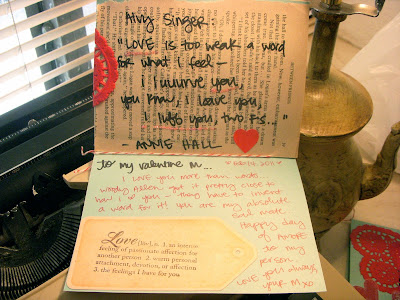 Alvy Singer:
"LOVE is too weak a word
for what I feel -
I luuurve you,
you know, I loave you,
I luff you, two F's..."
- ANNIE HALL
To my valentine M...
I LOVE you more than words
Woody Allen got it pretty close to
how I ♥ you - they have to invent
a word for it! you are my absolute
soul mate.
Happy day
of amore
to my
person.
LOVE you always,
your M xo
Love n. 1. an intense
feeling of passionate affection for
another person 2. warm personal
attachment, devotion, or affection
3. the feelings I have for you